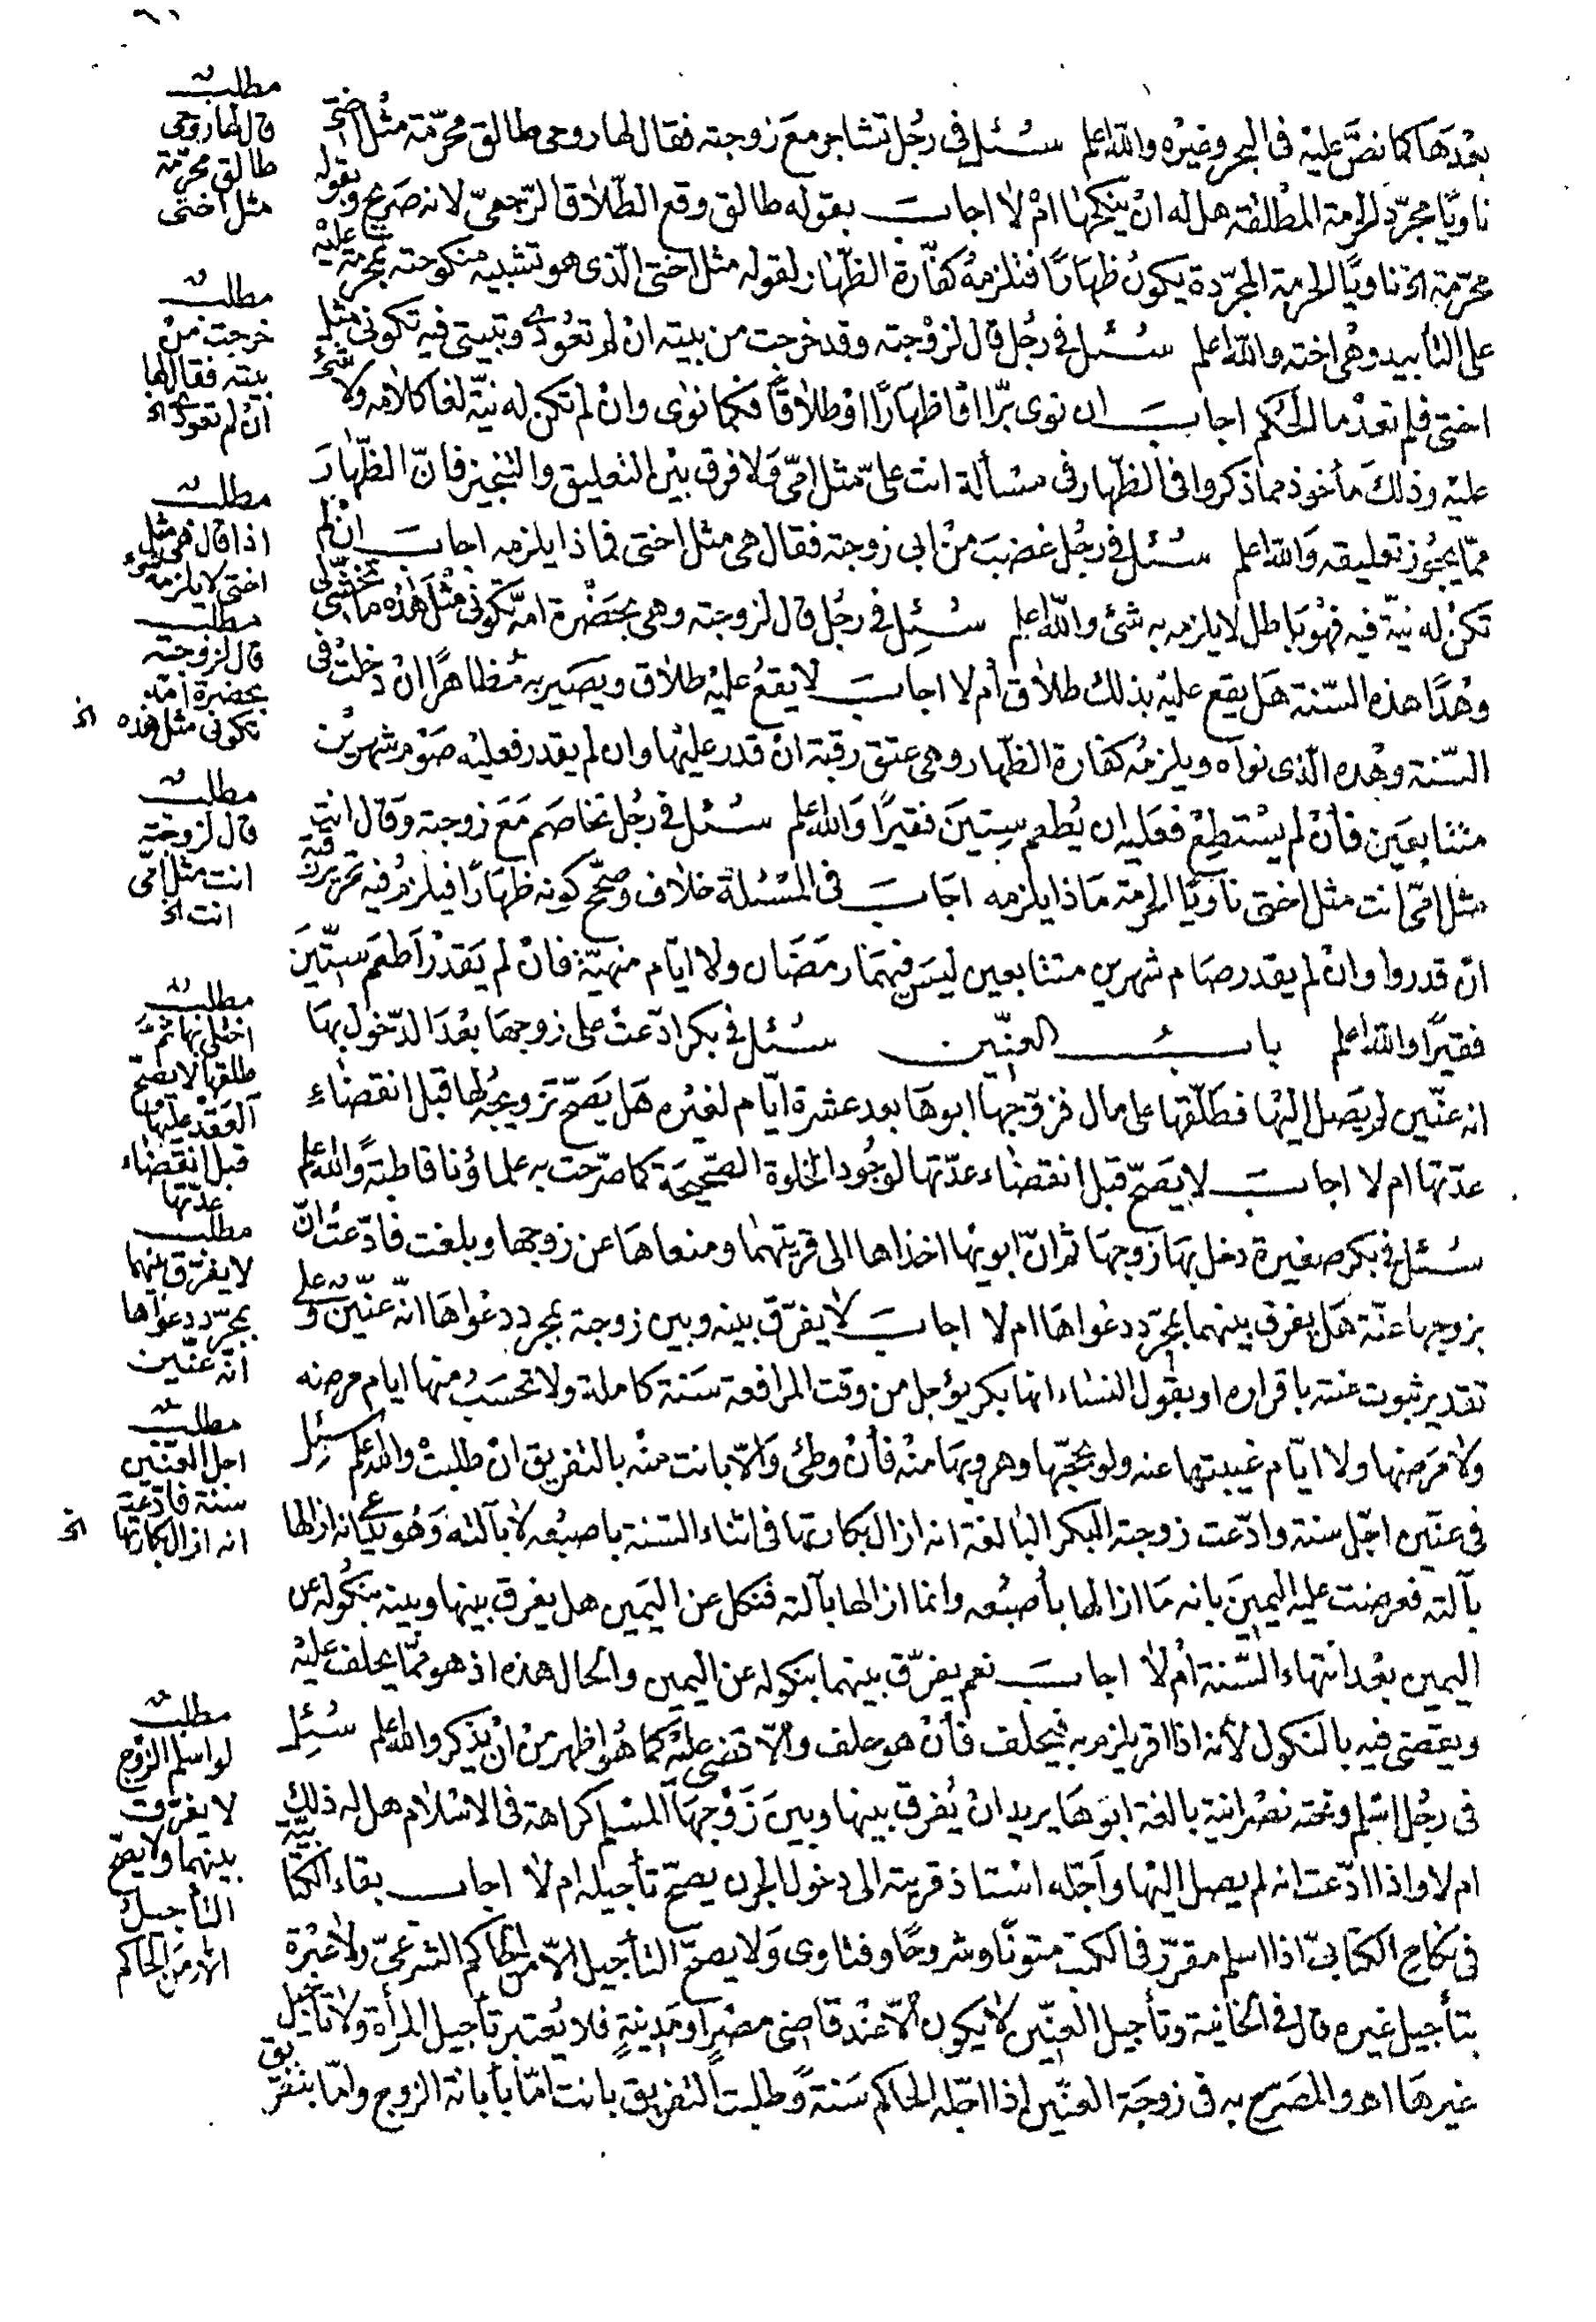 بعدها كما نص عليه في البحر وغيره والله اعلم سئل في رجل تشاجر مع زوجته فقال لها روحي طالق محرمة مثل اختي
ناويا مجرد الحرمة المطلقة هل له ان ينكحها ام لا اجاب بقوله طالق وقع الطلاق الرجعي لانه صريح وبقوله
محرمة الخ ناويا الحرمة المجردة يكون ظهارا فتلزمه كفارة الظهار لقوله مثل اختي الذي هو تشبيه منكوحته بمحرمة عليه
على التأبيد وهي اخته والله اعلم سئل في رجل قال لزوجته وقد خرجت من بيته ان لم تعودي وتبيتي فيه تكوني مثل
اختي فلم تعد ما الحكم اجاب ان نوى برا او ظهارا او طلاقا فكما نوى وان لم تكن له نية لغا كلامه ولا شئ
عليه وذلك مأخوذ مما ذكروا في الظهار في مسألة انت علي مثل امي ولا فرق بين التعليق والتنجيز فان الظهار
مما يجوز تعليقه والله اعلم سئل في رجل غضب من ابي زوجته فقال هي مثل اختي فماذا يلزمه اجاب ان لم
تكن له نية فيه فهو باطل لا يلزمه به شئ والله اعلم سئل في رجل قال لزوجته وهي بحضرة امه تكوني مثل هذه ما
وهذا هذه السنة هل يقع عليه بذلك طلاق ام لا اجاب لا يقع عليه طلاق ويصير به مظاهرا ان دخلت في
السنة وهذه الذي نواه ويلزمه كفارة الظهار وهي عتق رقبة ان قدر عليها وان لم يقدر فعليه صوم شهرين
متتابعين فان لم يستطع فعليه ان يطعم ستين فقيرا والله اعلم سئل في رجل تخاصم مع زوجته وقال انت
مثل امي انت مثل اختي ناويا الحرمة ماذا يلزمه اجاب في المسئلة خلاف وصحح كونه ظهارا فيلزم فيه تحرير رقبة
ان قدروا وان لم يقدر صام شهرين متتابعين ليس فيهما رمضان ولا ايام منهية فان لم يقدر اطعم ستين
فقيرا والله اعلم باب العنين سئل في بكر ادعت على زوجها بعد الدخول بها
انه عنين لم يصل اليها فطلقها على مال فزوجها ابوها بعد عشرة ايام لغيره هل يصح تزويجه لها قبل انقضاء
عدتها ام لا اجاب لا يصح قبل انقضاء عدتها لوجود الخلوة الصحيحة كما صرحت به علماؤنا قاطبة والله اعلم
سئل في بكر صغيرة دخل بها زوجها ثم ان ابويها اخذاها الى قريتهما ومنعاها عن زوجها وبلغت فادعت ان
بزوجها عنة هل يفرق بينهما بمجرد دعواها ام لا اجاب لا يفرق بينه وبين زوجته بمجرد دعواها انه عنين وعلى
تقدير ثبوت عنته باقراره او بقول النساء انها بكر يؤجل من وقت المرافعة سنة كاملة ولا تحسب منها ايام مرضه
ولا مرضها ولا ايام غيبتها عنه ولو بحجها وهروبها منه فان وطئ والا بانت منه بالتفريق ان طلبت والله اعلم سئل
في عنين اجل سنة وادعت زوجته البكر البالغة انه ازال بكارتها في اثناء السنة باصبعه لا بآلته وهو يدعي انه ازالها
بآلته فعرضت عليه اليمين بانه ما ازالها بأصبعه وانما ازالها بآلته فنكل عن اليمين هل يفرق بينها وبينه بنكوله عن
اليمين بعد انتهاء السنة ام لا اجاب نعم يفرق بينهما بنكوله عن اليمين والحال هذه اذ هو مما يحلف عليه
ويقضى فيه بالنكول لأنه اذا اقر يلزم به فيحلف فان هو حلف والا قضي عليه كما هو اظهر من ان يذكر والله اعلم سئل
في رجل اسلم وتحته نصرانية بالغة ابوها يريد ان يفرق بينها وبين زوجها المسلم كراهة في الاسلام هل له ذلك
ام لا واذا ادعت انه لم يصل اليها وأجله استاذ قريته الى دخول الجرن يصح تأجيله ام لا اجاب بقاء الكتابية
في نكاح الكتابي اذا اسلم مقرر في الكتب متونا وشروحا وفتاوى ولا يصح التأجيل الا من الحاكم الشرعي ولا عبرة
بتأجيل غيره قال في الخانية وتأجيل العنين لا يكون الا عند قاضي مصر او مدينة فلا يعتبر تأجيل المرأة ولا تأجيل
غيرها اهـ والمصرح به في زوجة العنين اذا اجله الحاكم سنة وطلبت التفريق بانت اما بأبانة الزوج واما بتفريق
مطلب
قال لها روحي
طالق محرمة
مثل اختي
مطلب
خرجت من
بيته فقال لها
ان لم تعودي الخ
مطلب
اذا قال هي مثل
اختي لا يلزمه شئ
مطلب
قال لزوجته
بحضرة امه
تكوني مثل هذه الخ
مطلب
قال لزوجته
انت مثل امي
انت الخ
مطلب
اختلى بها ثم
طلقها لا يصح
العقد عليها
قبل انقضاء
عدتها
مطلب
لا يفرق بينهما
بمجرد دعواها
انه عنين
مطلب
اجل العنين
سنة فادعت
انه ازال بكارتها الخ
مطلب
لو اسلم الزوج
لا يفرق
بينهما ولا يصح
التأجيل
الا من الحاكم